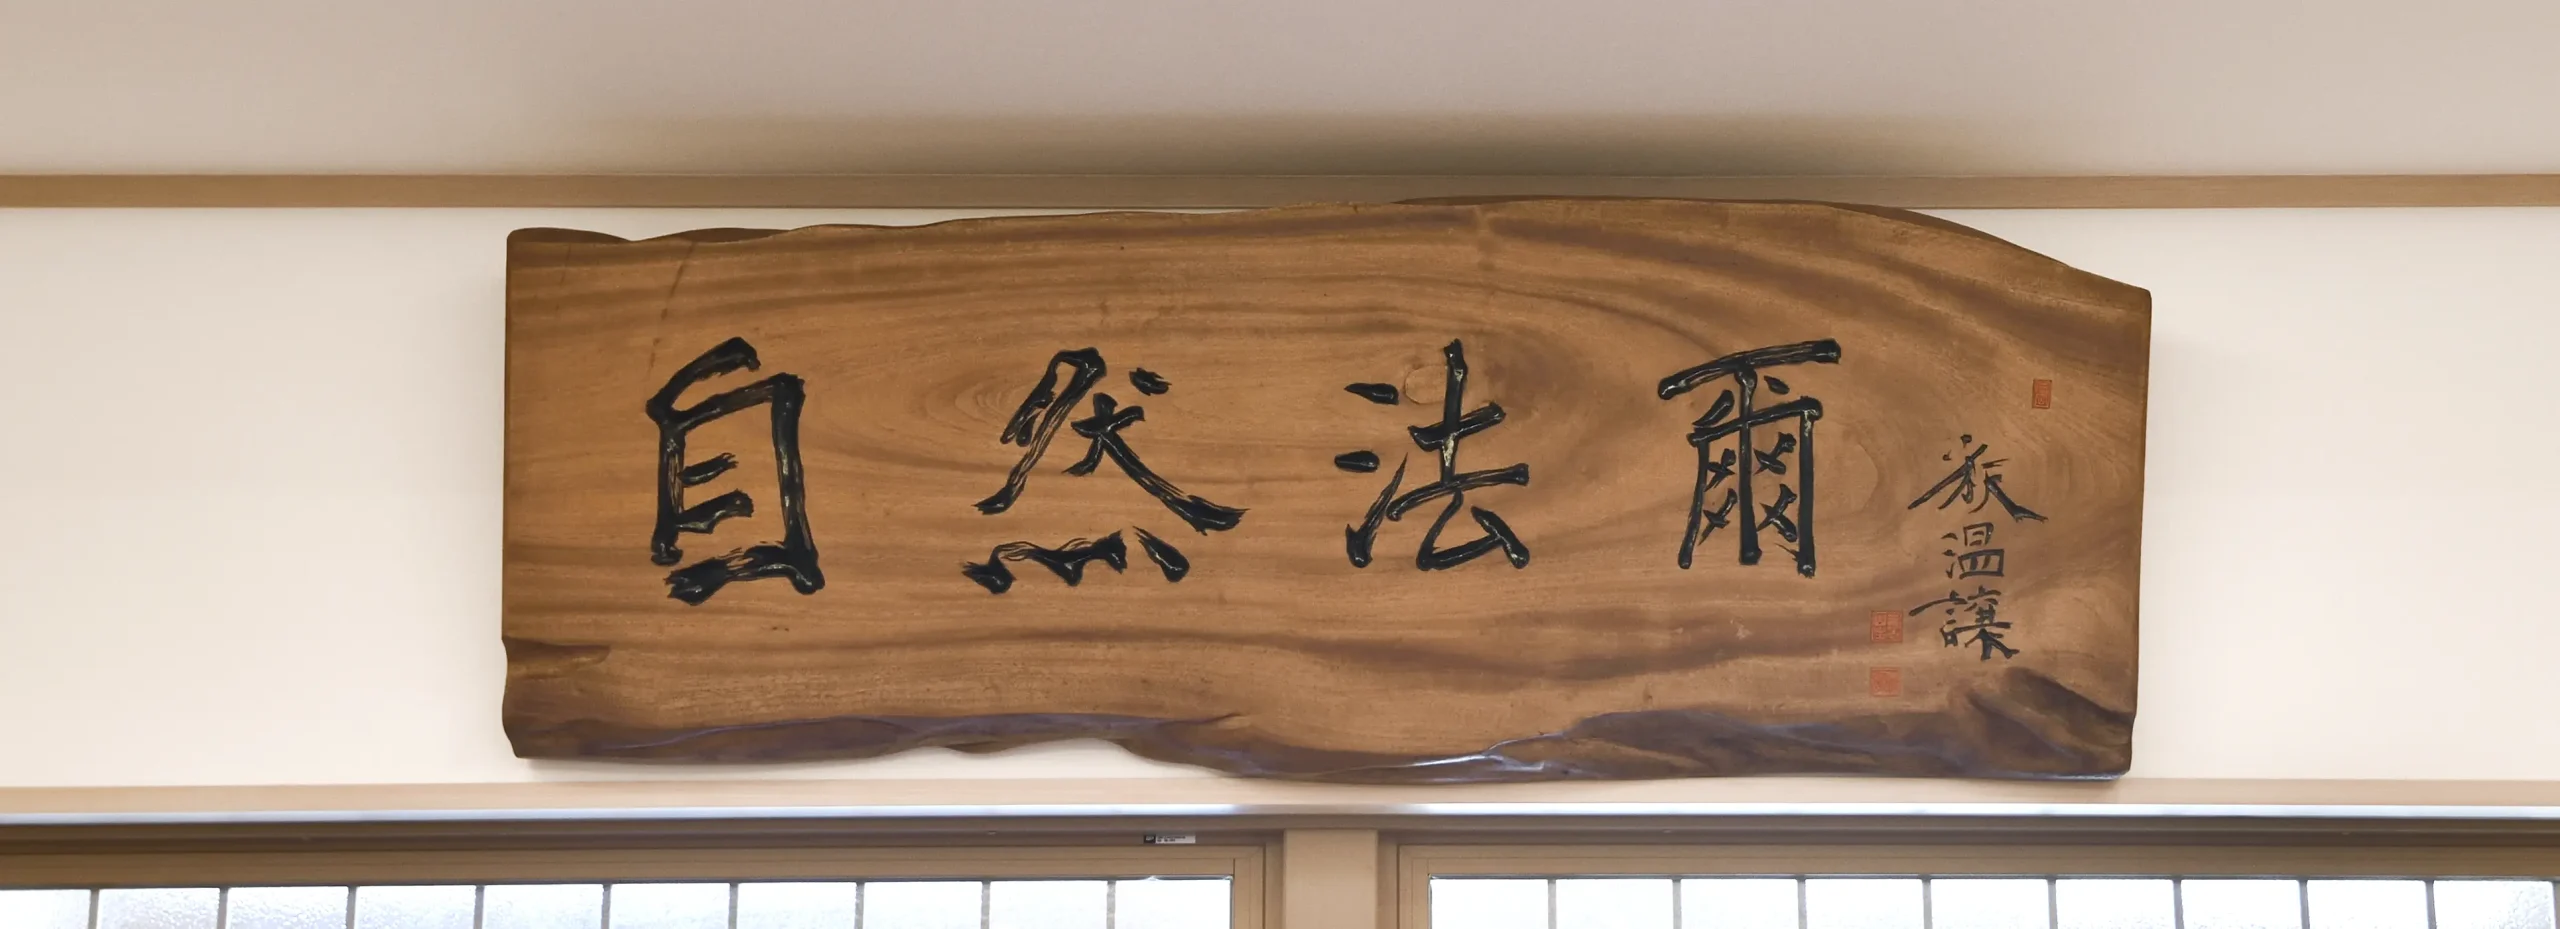 自然法爾
釈温譲